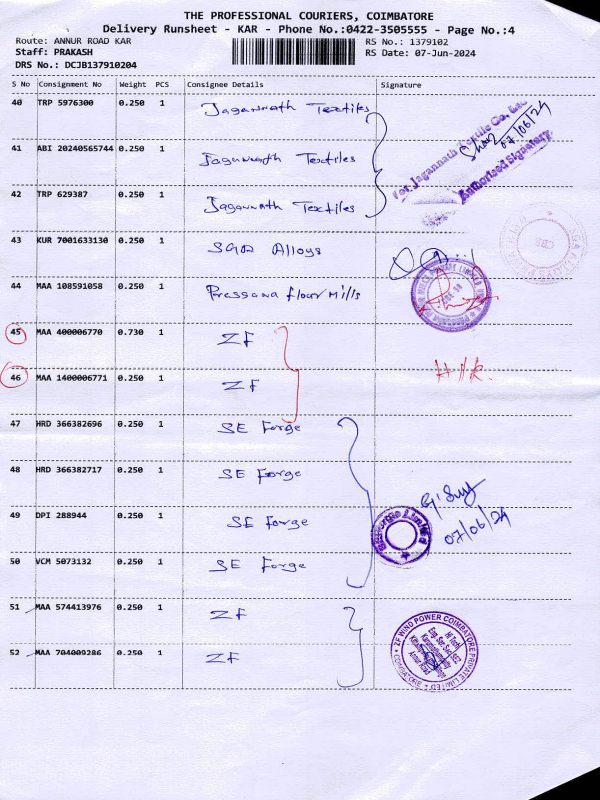 THE PROFESSIONAL COURIERS, COIMBATORE
Delivery Runsheet - KAR - Phone No.:0422-3505555 - Page No.:4
Route: ANNUR ROAD KAR
RS No.: 1379102
Staff: PRAKASH
RS Date: 07-Jun-2024
DRS No.: DCJB137910204
S No Consignment No Weight PCS Consignee Details Signature
40 TRP 5976300 0.250 1 Jagannath Textiles
41 ABI 20240565744 0.250 1 Jagannath Textiles
42 TRP 629387 0.250 1 Jagannath Textiles
For. Jagannath Textile Co. Ltd
07/06/24
Authorised Signatory.
43 KUR 7001633130 0.250 1 SGA Alloys
44 MAA 108591058 0.250 1 Prassana flour Mills
45 MAA 400006770 0.730 1 ZF
46 MAA 1400006771 0.250 1 ZF
47 HRD 366382696 0.250 1 SE Forge
48 HRD 366382717 0.250 1 SE Forge
49 DPI 288944 0.250 1 SE Forge
07/06/24
Limited
50 VCM 5073132 0.250 1 SE Forge
51 MAA 574413976 0.250 1 ZF
52 MAA 704009286 0.250 1 ZF
ZF WIND POWER COIMBATORE PRIVATE LIMITED
COIMBATORE
Annur Road